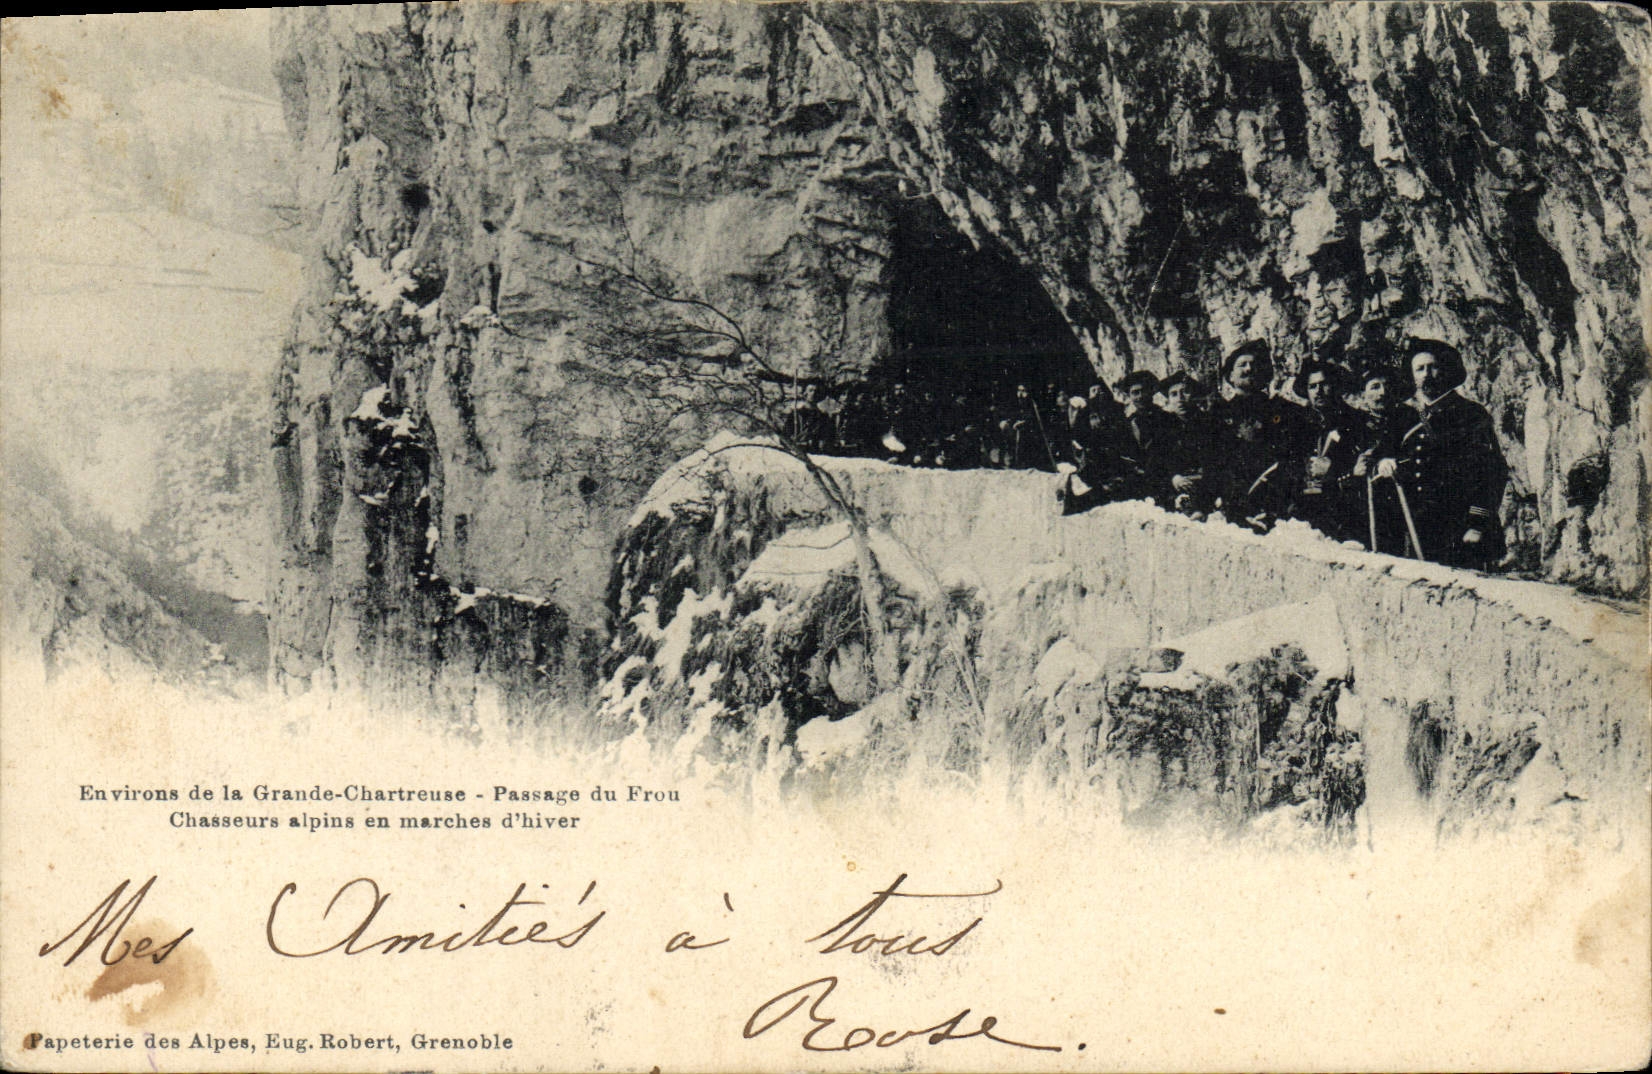 Environs de la Grande-Chartreuse - Passage du Frou
Chasseurs alpins en marches d'hiver
Mes Amitiés à tous
Rose.
Papeterie des Alpes, Eug. Robert, Grenoble